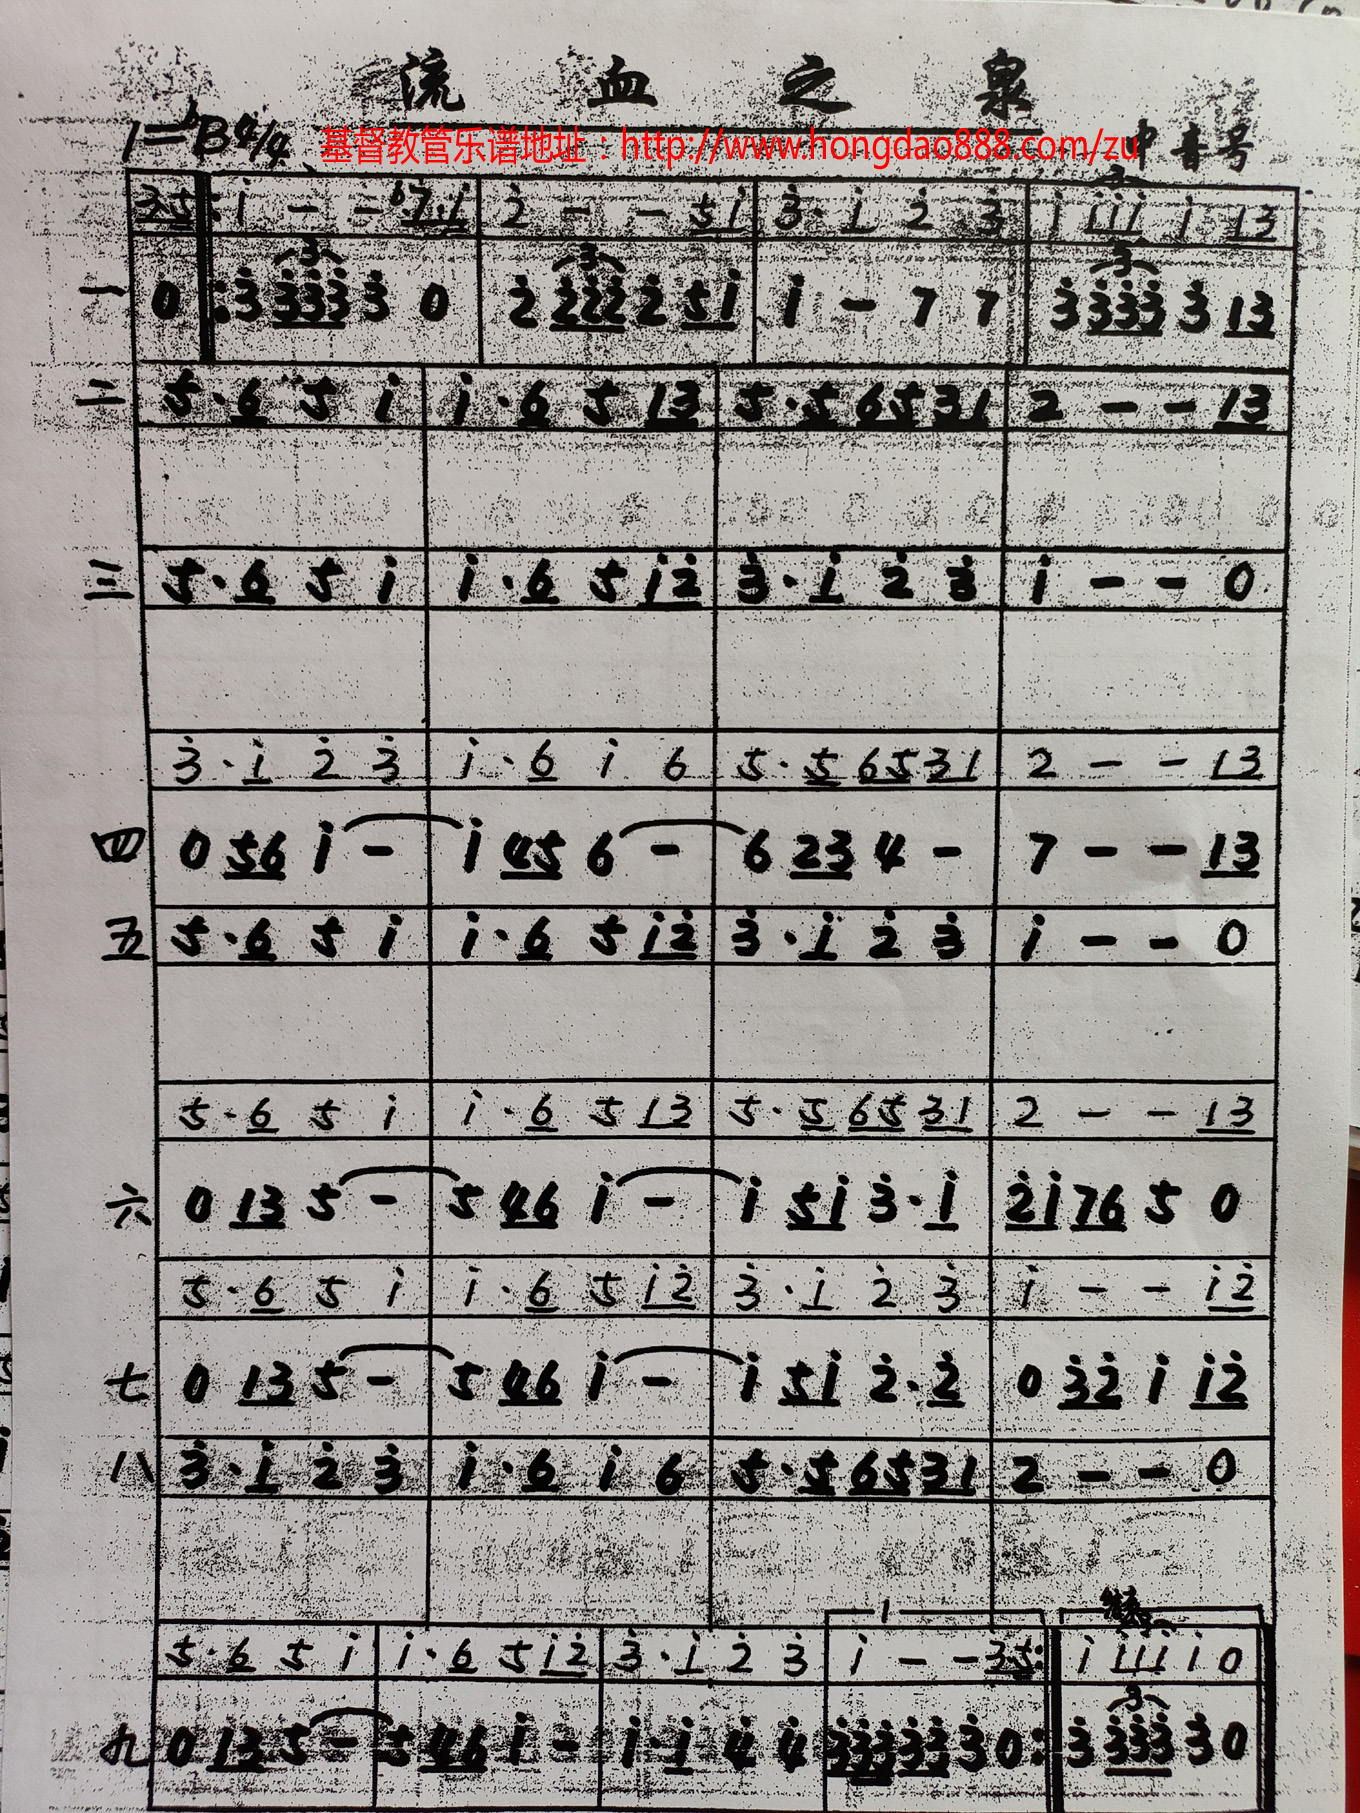 流 血 之 泉
1=♭B 4/4
基督教管乐谱地址：http://www.hongdao888.com/zu
中音号
35 :i̇ - - ♭7·i̇ 2̇ - - 5i̇ 3̇·i̇ 2̇ 3̇ i̇ i̇i̇i̇ i̇ 13
一 0 :3̇ 3̇3̇3̇ 3̇ 0 2̇ 2̇2̇2̇ 2̇ 5i̇ i̇ - 7 7 3̇ 3̇3̇3̇ 3̇ 13
二 5·6 5 i̇ i̇·6 5 13 5·5 65 31 2 - - 13
三 5·6 5 i̇ i̇·6 5 i̇2̇ 3̇·i̇ 2̇ 3̇ i̇ - - 0
3̇·i̇ 2̇ 3̇ i̇·6 i̇ 6 5·5 65 31 2 - - 13
四 0 56 i̇ - i̇ 45 6 - 6 23 4 - 7 - - 13
五 5·6 5 i̇ i̇·6 5 i̇2̇ 3̇·i̇ 2̇ 3̇ i̇ - - 0
5·6 5 i̇ i̇·6 5 13 5·5 65 31 2 - - 13
六 0 13 5 - 5 46 i̇ - i̇ 5i̇ 3̇·i̇ 2̇i̇ 76 5 0
5·6 5 i̇ i̇·6 5 i̇2̇ 3̇·i̇ 2̇ 3̇ i̇ - - i̇2̇
七 0 13 5 - 5 46 i̇ - i̇ 5i̇ 2̇·2̇ 0 3̇2̇ i̇ i̇2̇
八 3̇·i̇ 2̇ 3̇ i̇·6 i̇ 6 5·5 65 31 2 - - 0
1
5·6 5 i̇ i̇·6 5 i̇2̇ 3̇·i̇ 2̇ 3̇ i̇ - - 35: i̇ i̇i̇i̇ i̇ 0
九 0 13 5 - 5 46 i̇ - i̇·i̇ 4̇ 4̇ 3̇3̇3̇ 3̇3̇ 3̇ 0: 3̇ 3̇3̇3̇ 3̇ 0